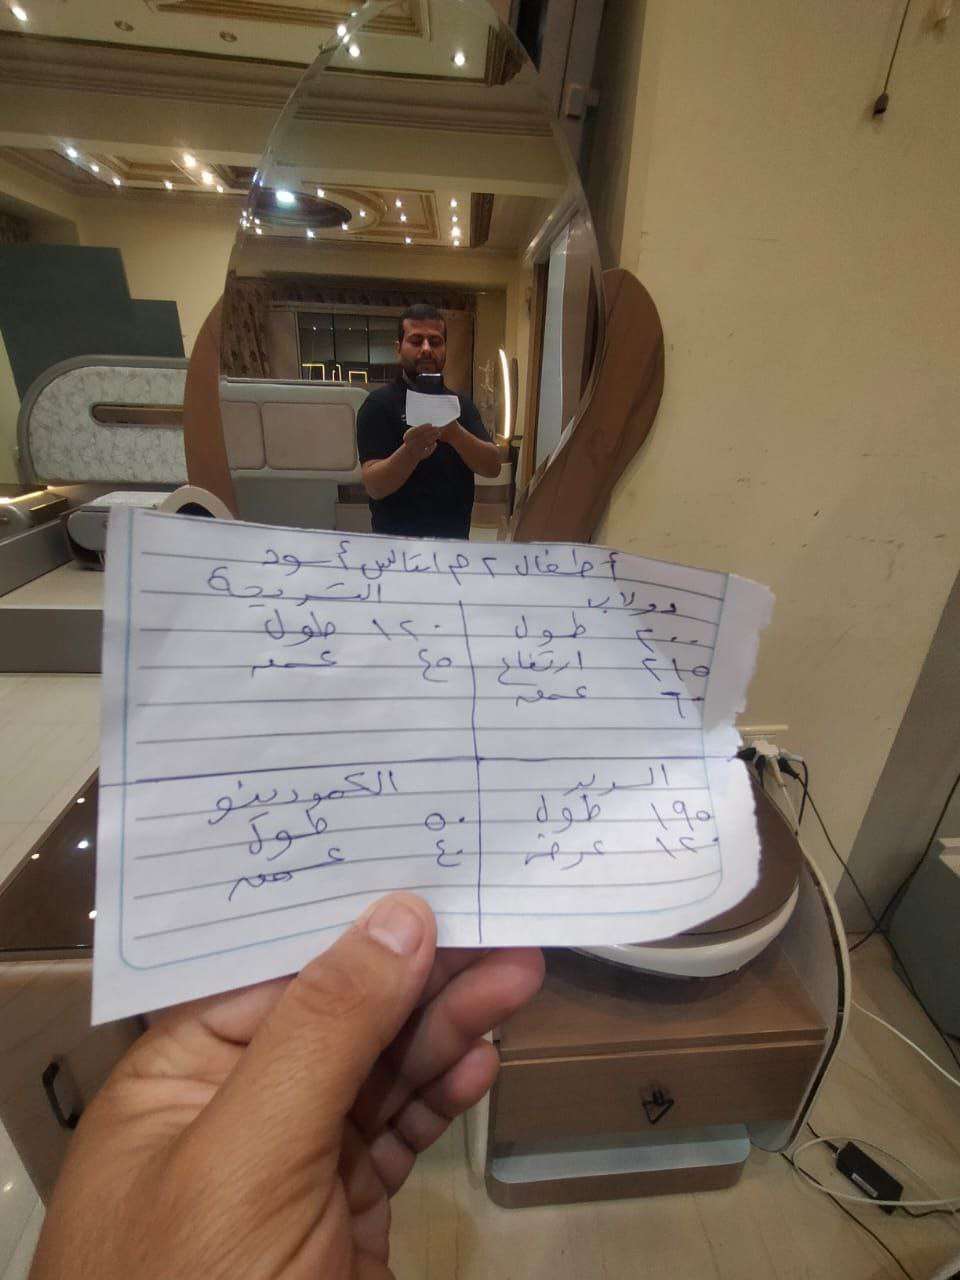 أطفال ٢ م ايتالس أسود
دولاب
٢٠٠ طول
٢١٥ ارتفاع
٦٠ عمق
التسريحة
١٢٠ طول
٤٥ عمق
السرير
١٩٥ طول
١٢٠ عرض
الكمودينو
٥٠ طول
٤٠ عمق